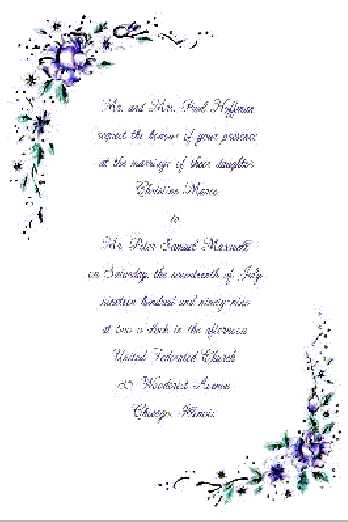 Mr. and Mrs. Paul Hoffman
request the honour of your presence
at the marriage of their daughter
Christine Marie
to
Mr. Samuel
on Saturday, the seventeenth of July
nineteen hundred and ninety-nine
at two o'clock in the afternoon
United Federated Church
Woodcrest Avenue
Chicago, Illinois